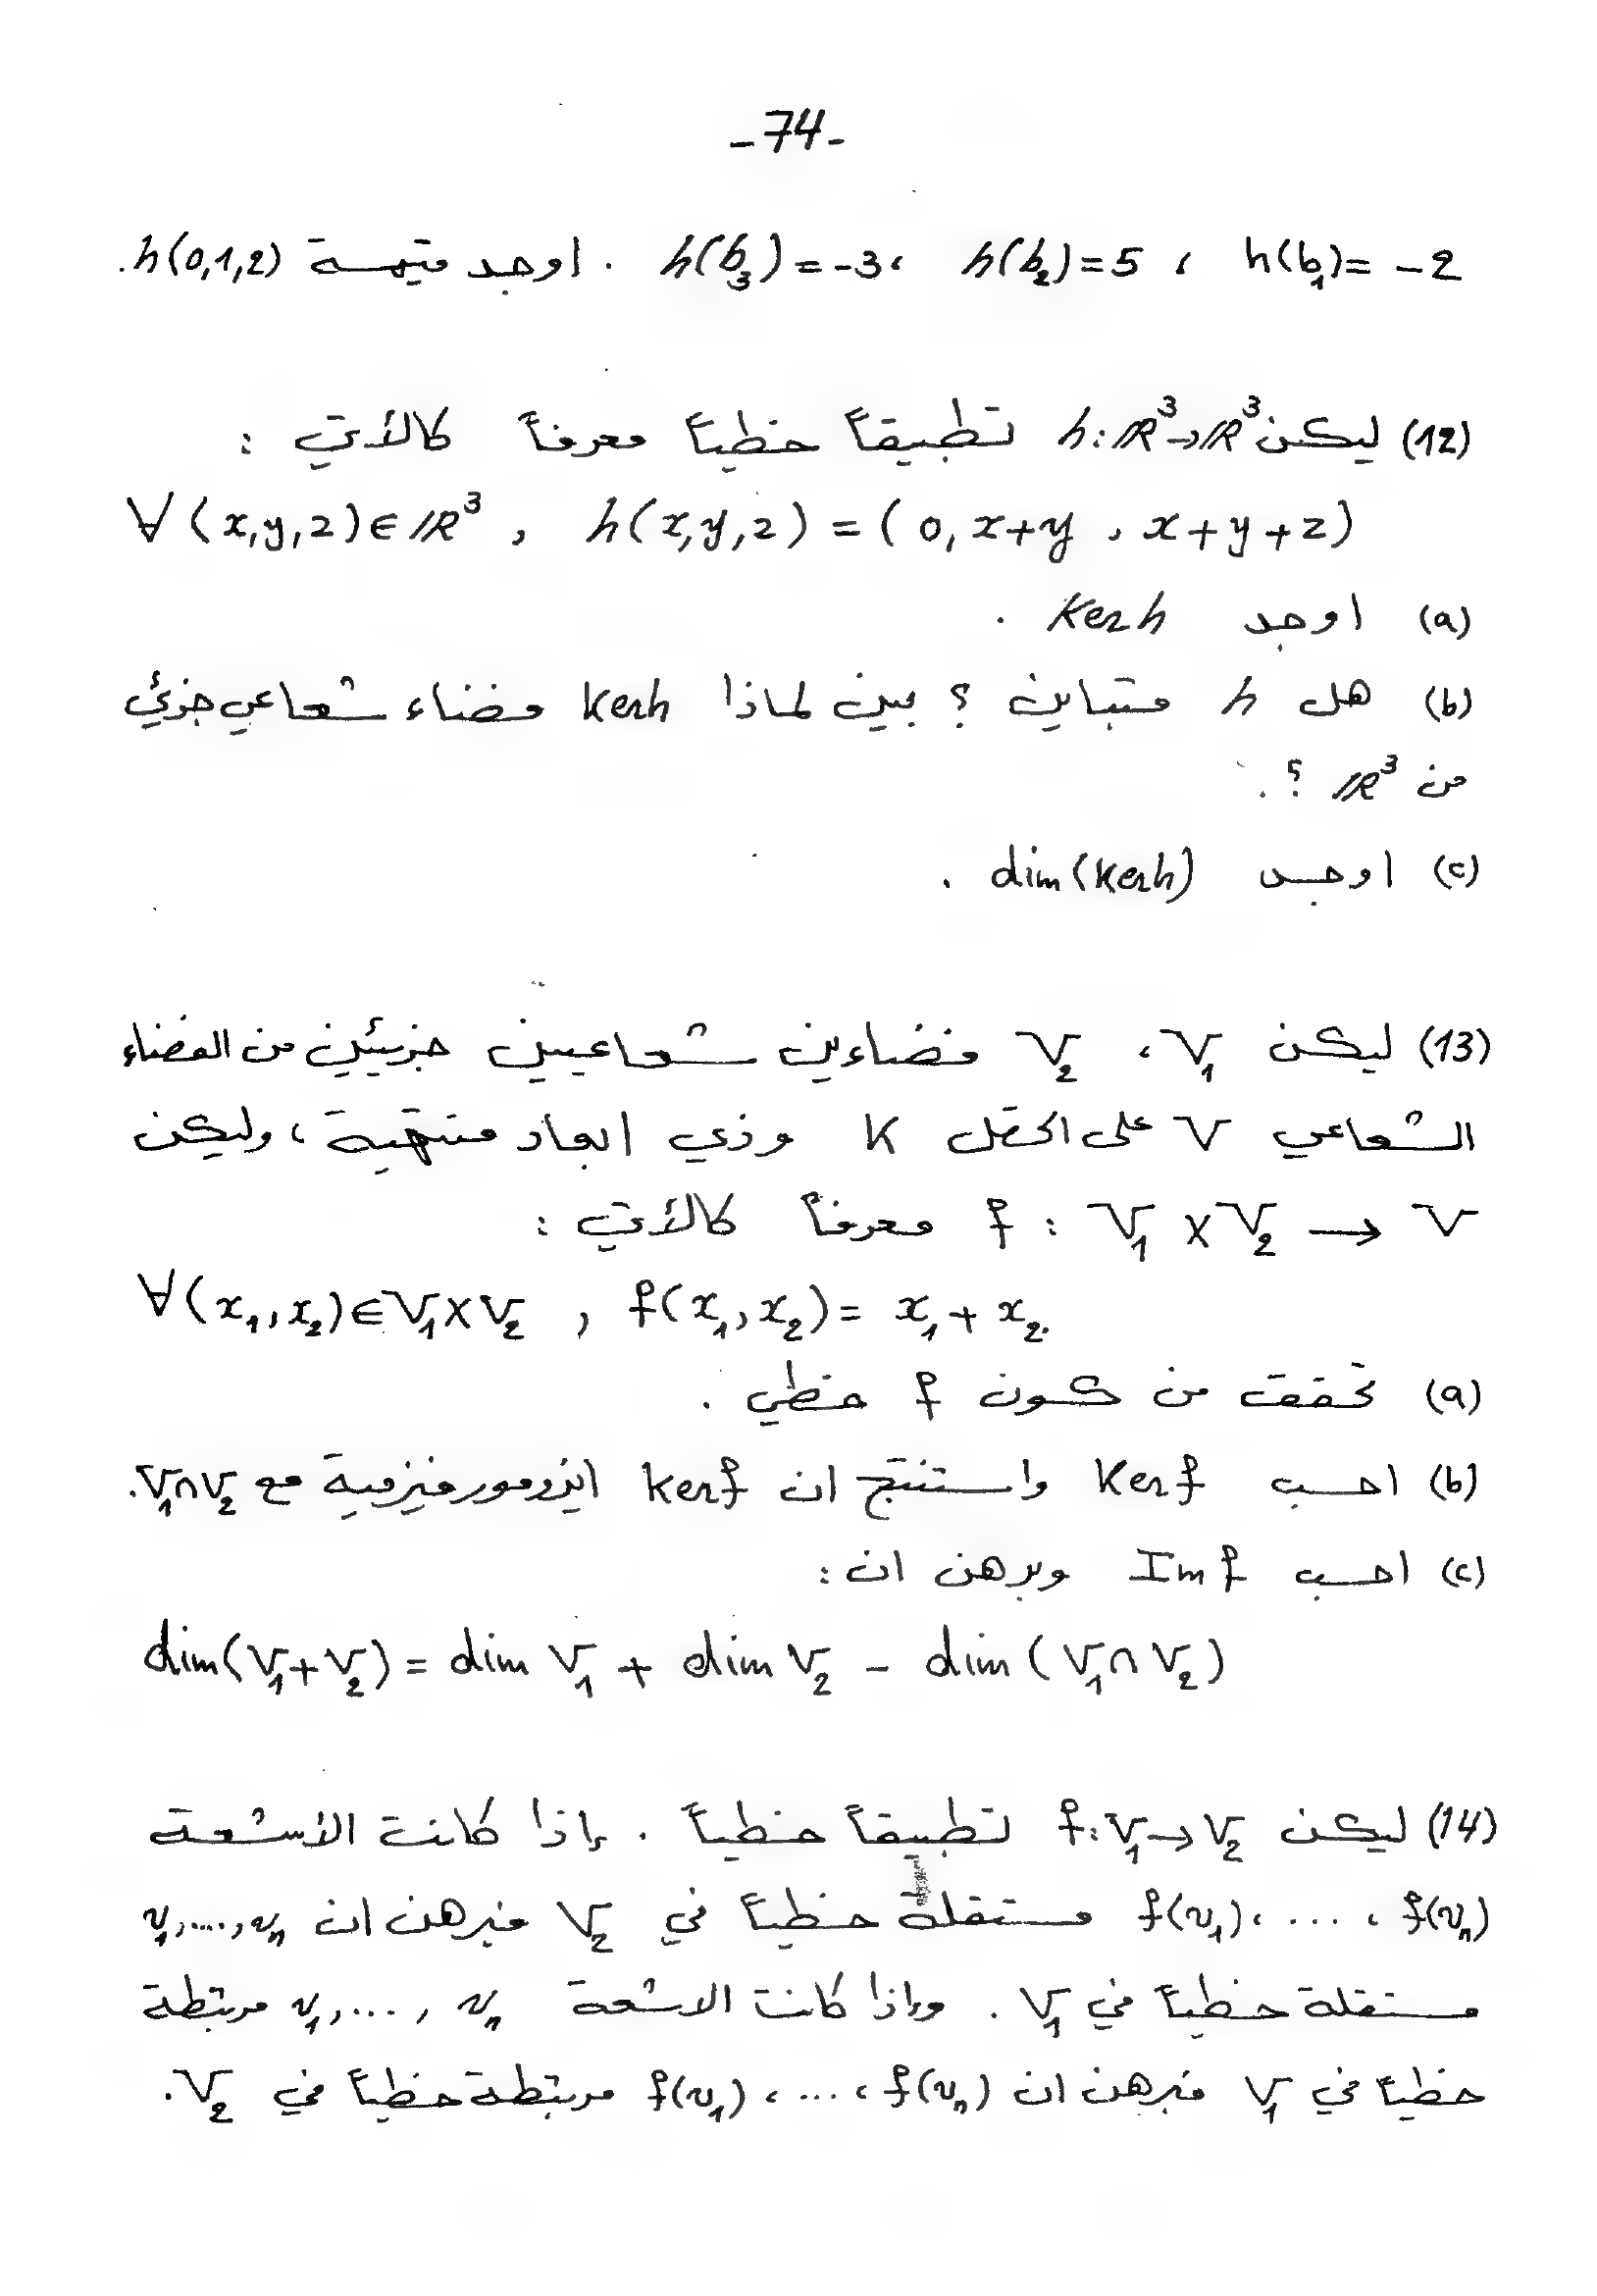 -74-
h(b₁)= -2 ، h(b₂)=5 ، h(b₃)=-3 . اوجد قيمة h(0,1,2).
(12) ليكن h:ℝ³→ℝ³ تطبيقاً خطياً معرفاً كالأتي :
∀(x,y,z)∈ℝ³ , h(x,y,z) = (0, x+y , x+y+z)
(a) اوجد Kerh .
(b) هل h متباين ؟ بين لماذا Kerh فضاء شعاعي جزئي
من ℝ³ ؟.
(c) اوجد dim(Kerh) .
(13) ليكن V₁ ، V₂ فضاءين شعاعيين جزئيين من الفضاء
الشعاعي V على الحقل K وذي ابعاد منتهية ، وليكن
f : V₁ × V₂ → V معرفاً كالأتي :
∀(x₁,x₂)∈V₁×V₂ , f(x₁,x₂)= x₁+x₂.
(a) تحقق من كون f خطي .
(b) احسب Kerf واستنتج ان Kerf ايزومورفيزمية مع V₁∩V₂.
(c) احسب Imf وبرهن ان :
dim(V₁+V₂)= dim V₁ + dim V₂ - dim (V₁∩V₂)
(14) ليكن f:V₁→V₂ تطبيقاً خطياً . إذا كانت الأشعة
f(v₁)، ... ، f(vₙ) مستقلة خطياً في V₂ فبرهن ان v₁,....,vₙ
مستقلة خطياً في V₁ . وإذا كانت الاشعة v₁,..., vₙ مرتبطة
خطياً في V₁ فبرهن ان f(v₁) ، ... ، f(vₙ) مرتبطة خطياً في V₂.